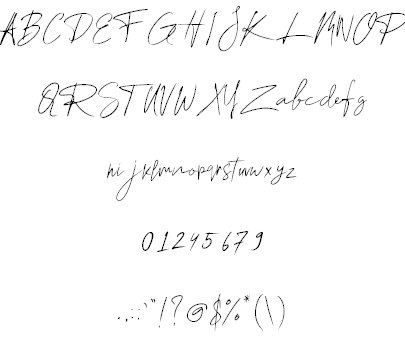 ABCDEFGHIJKLMNOP
QRSTUVWXYZabcdefg
hijklmnopqrstuvwxyz
012345679
.,:;'"!?@$%*(\)